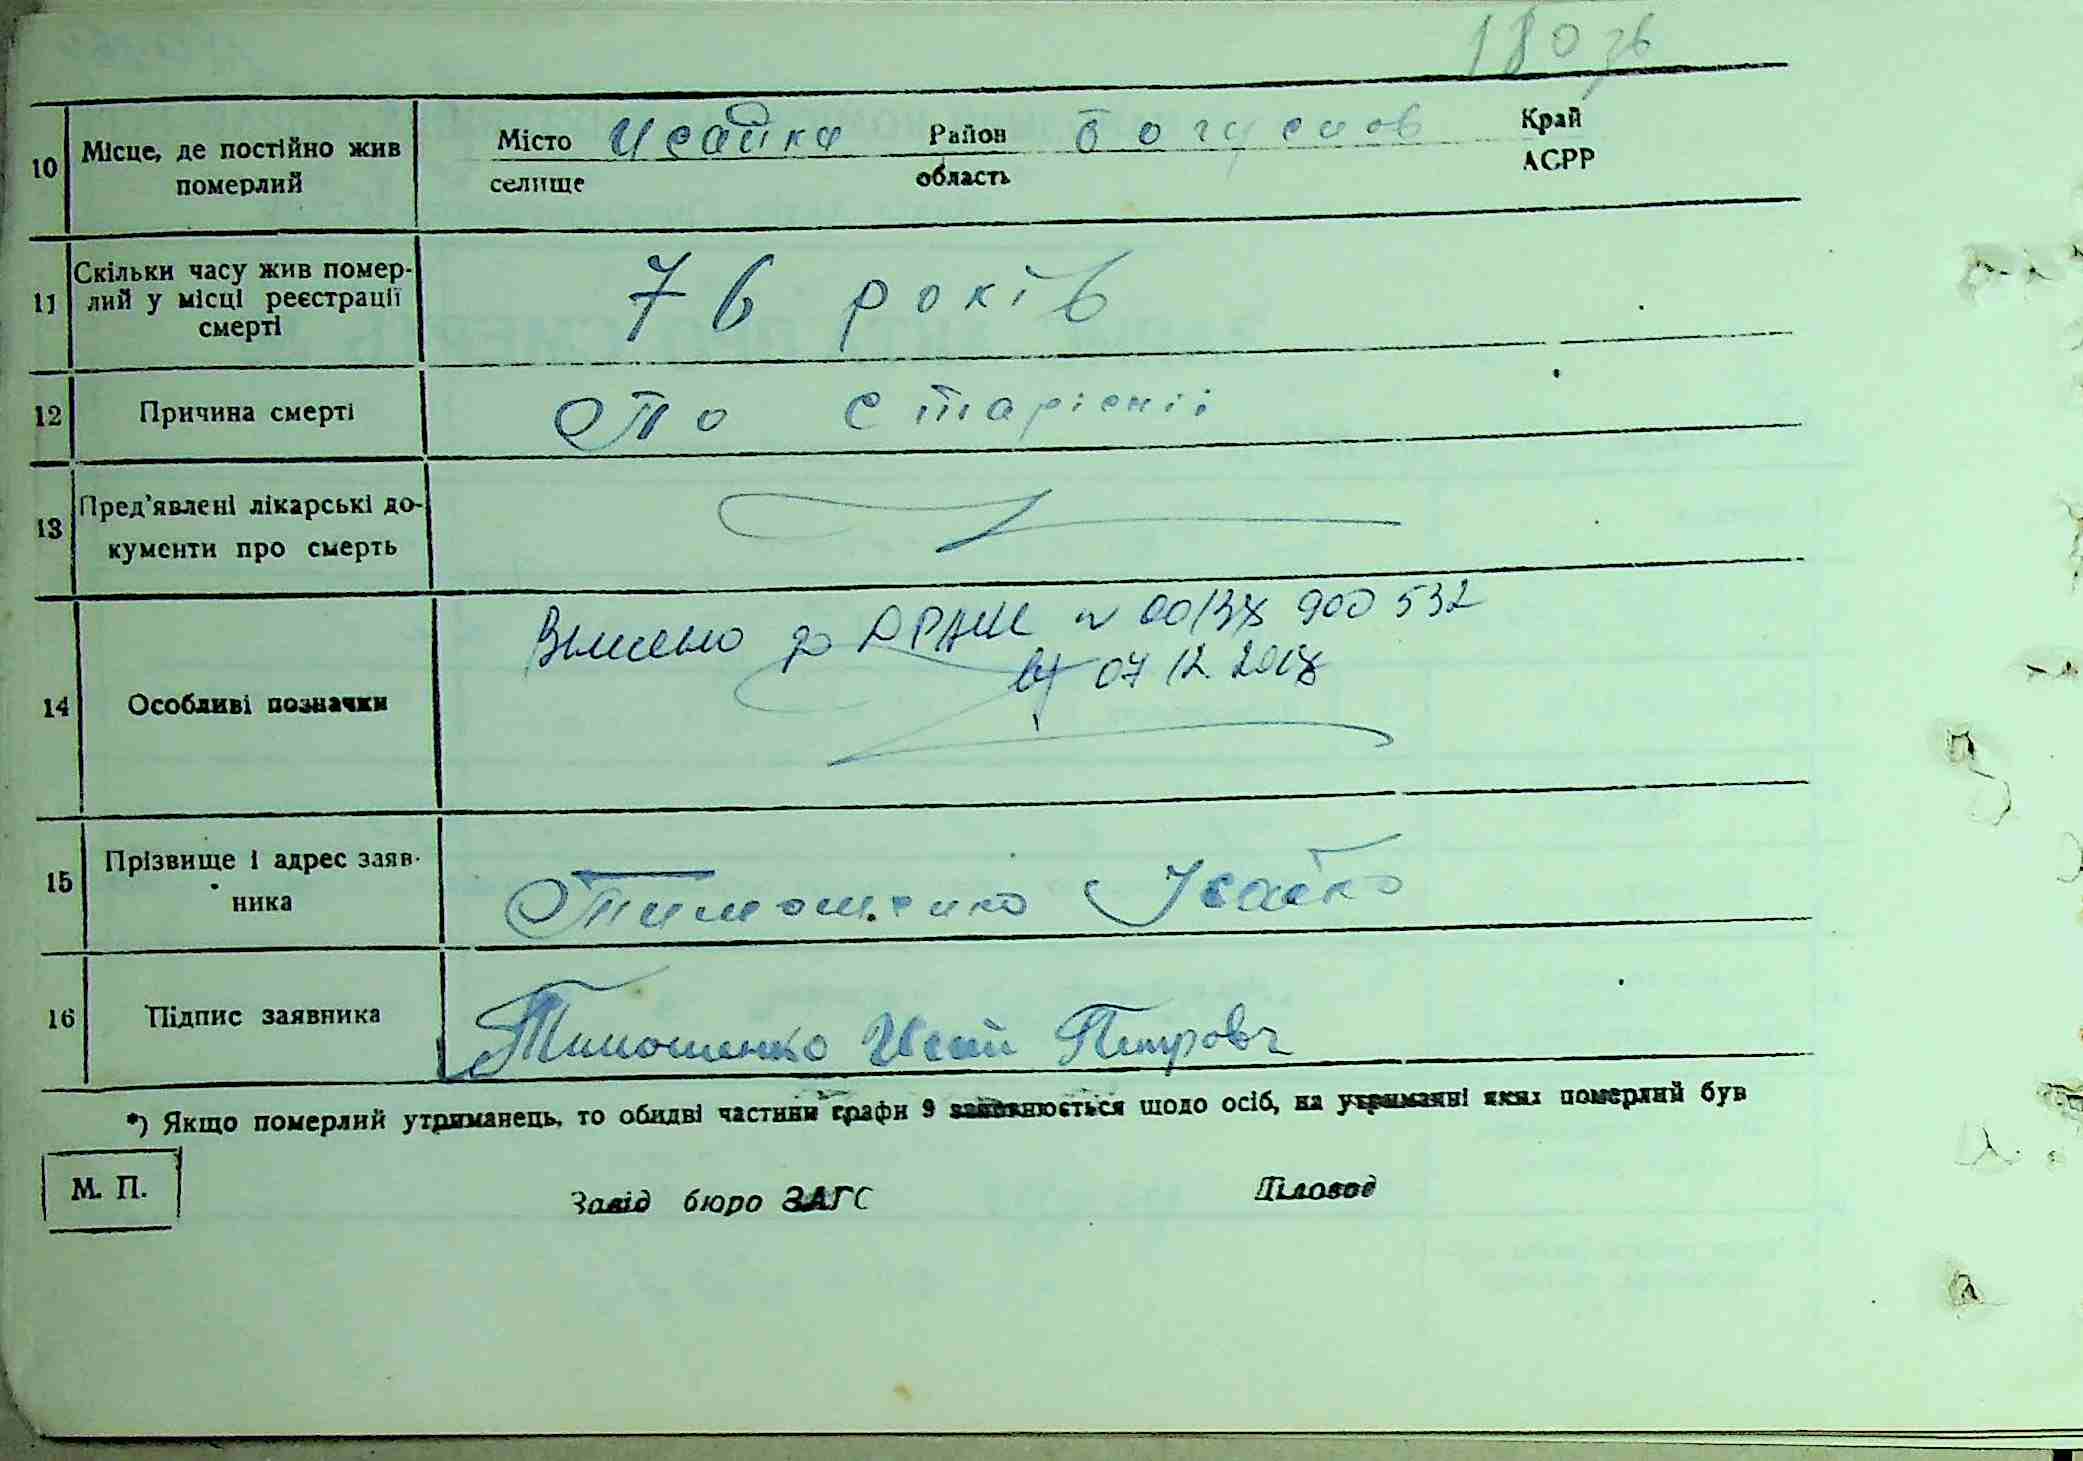 180 зв
10 Місце, де постійно жив померлий
Місто Исайки Район Богуслав Край
селище область АСРР
11 Скільки часу жив помер-
лий у місці реєстрації
смерті
76 років
12 Причина смерті По старісті
13 Пред'явлені лікарські до-
кументи про смерть
14 Особливі позначки
Внесено до ДРАЦС № 00138 900 532
від 07 12 2018
15 Прізвище і адрес заяв-
ника
Тимошенко Ісайки
16 Підпис заявника Тимошенко Исай Петрович
*) Якщо померлий утриманець, то обидві частини графи 9 заповнюється щодо осіб, на утриманні яких померлий був
М. П. Завід бюро ЗАГС Діловод